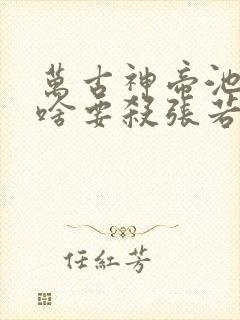 萬古神帝池
啥要殺張若
任紅芳